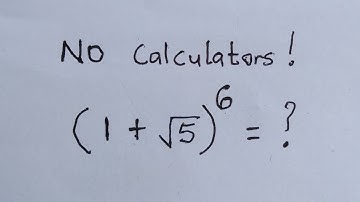 No Calculators!
(1 + √5)⁶ = ?